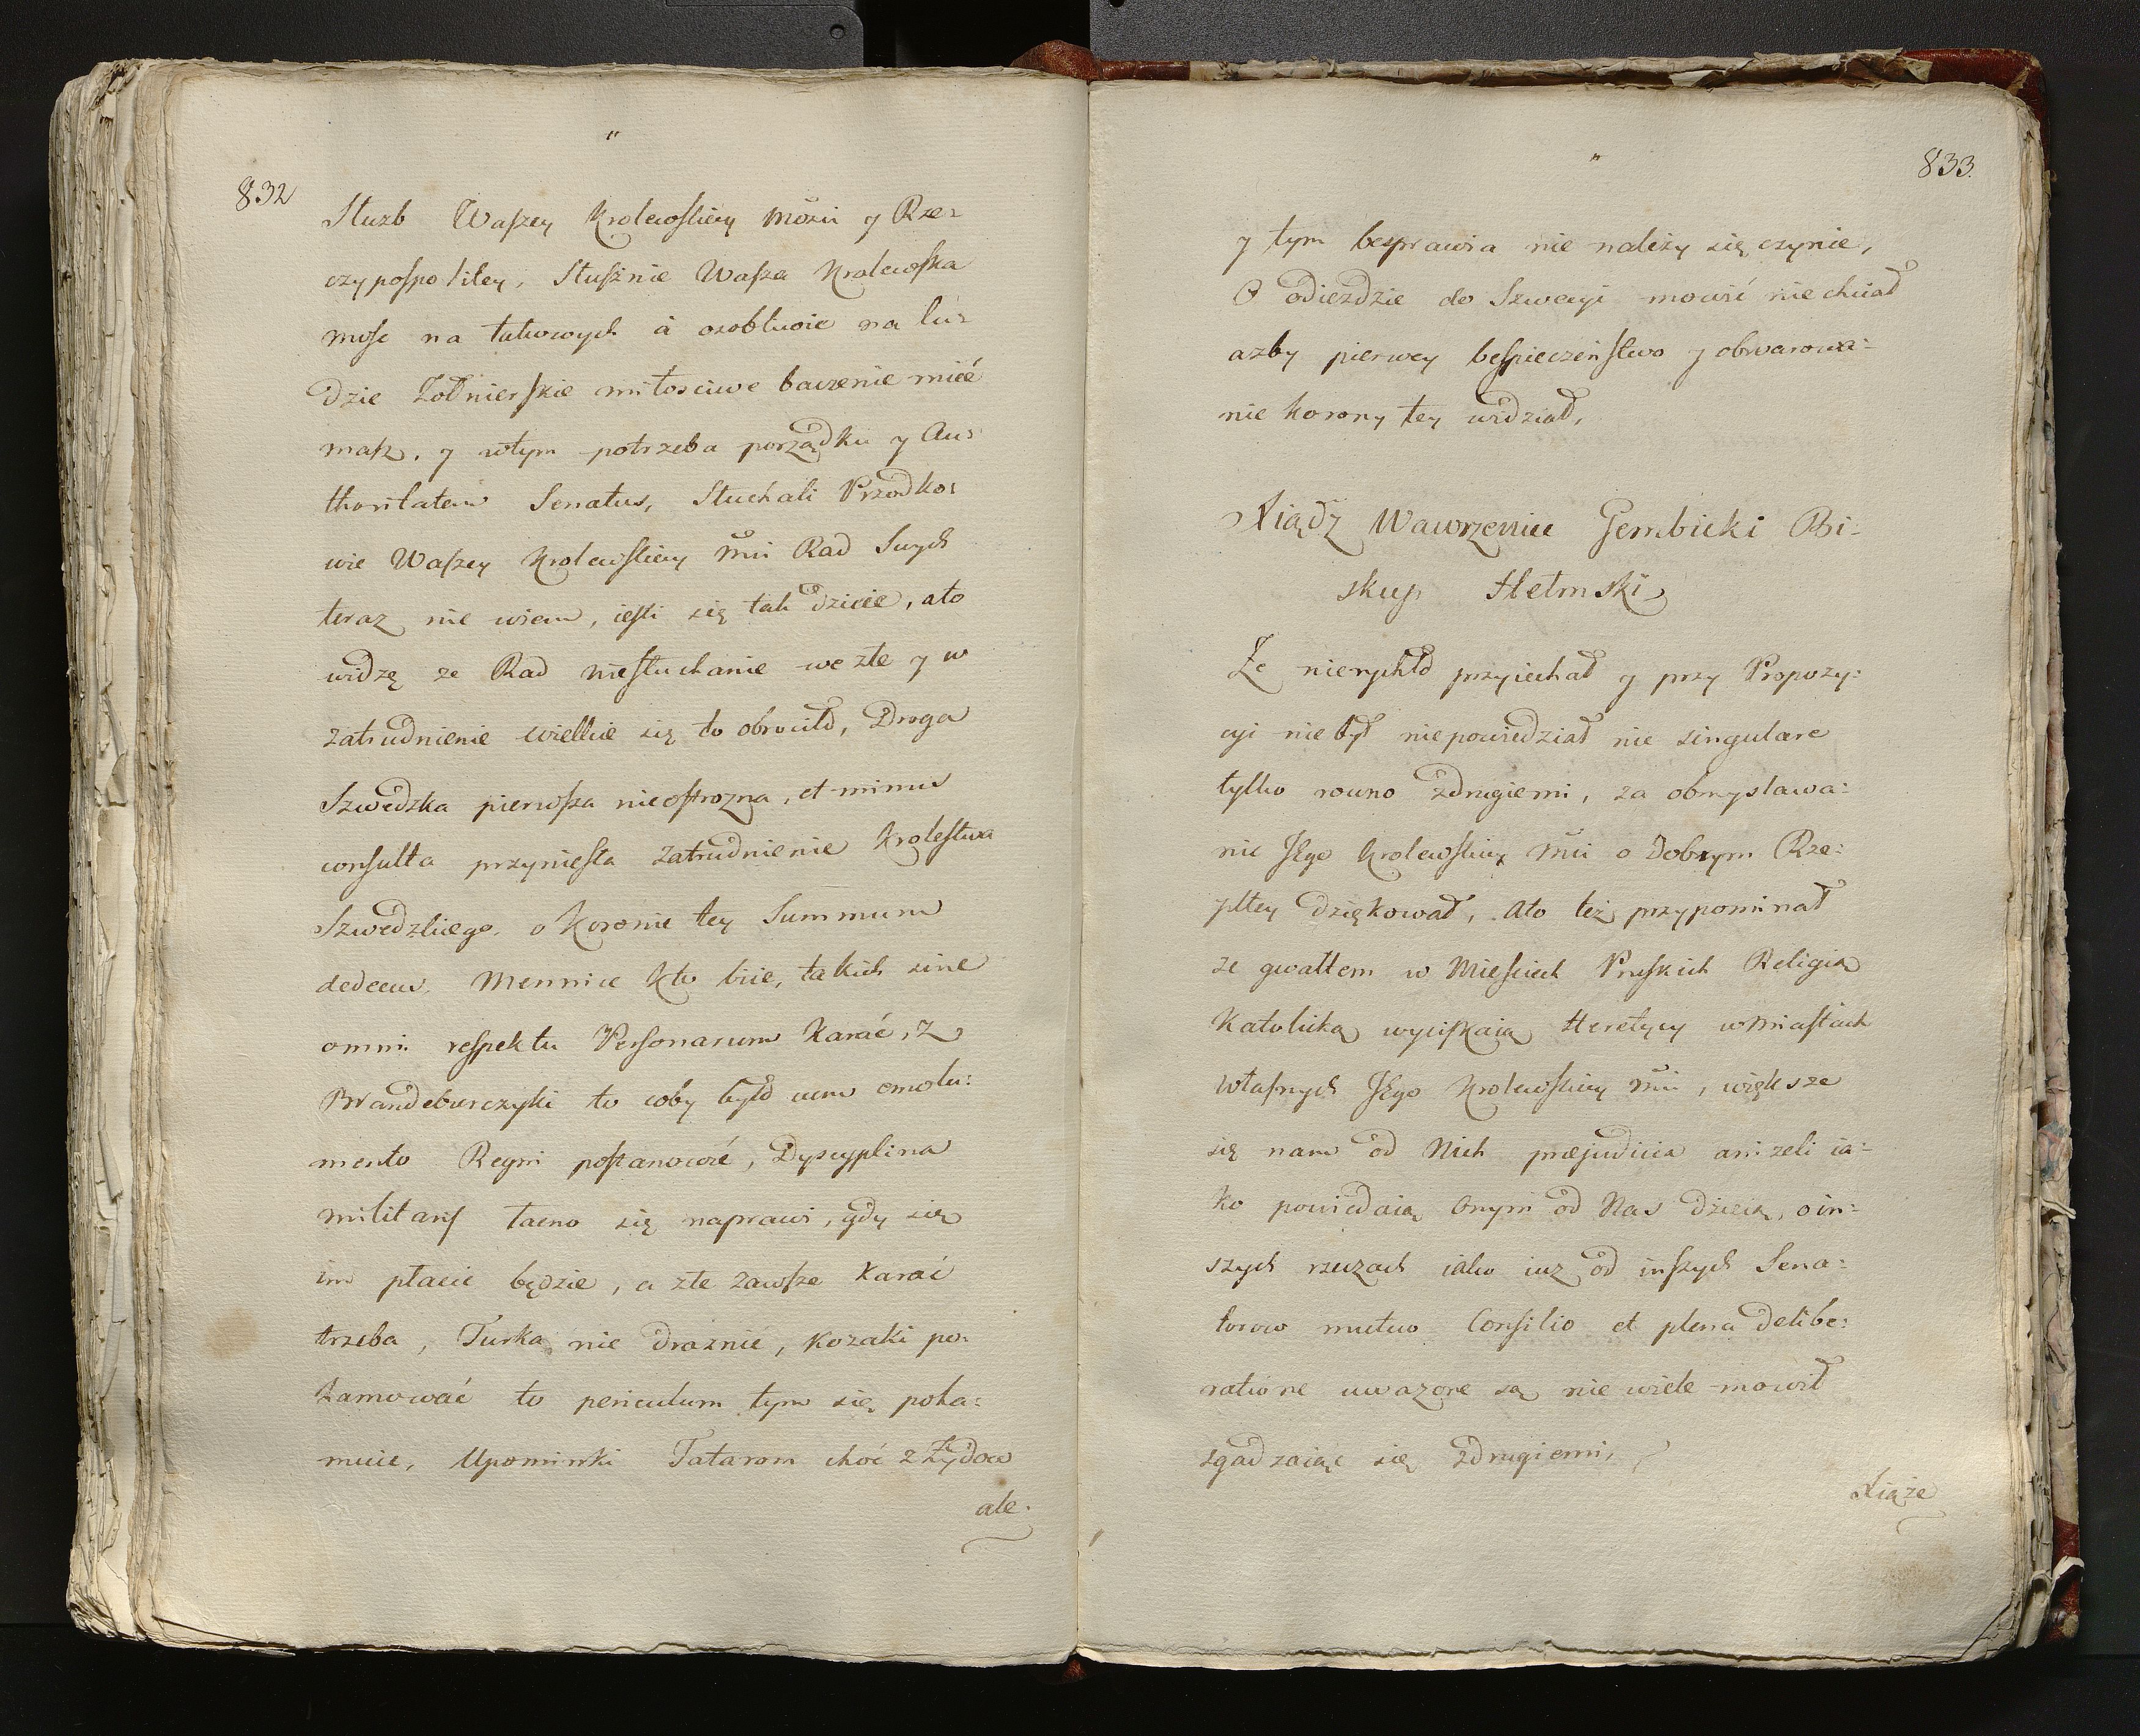 832
Służb Waszey Krolewskiey Mości y Rze-
czypospolitey, Słusznie Wasza Krolewska
Mosc na takowych à osobliwie na lu-
dzie Zołnierskie miłosciwe baczenie mieć
masz, y wtym potrzeba porządku y Au-
thoritatem Senatus, Słuchali Przodko-
wie Waszey Krolewskiey Mci Rad Swych
teraz nie wiem, iesli się tak dzieie, ato
widzę ze Rad niesłuchanie we złe y w
zatrudnienie wielkie się to obrociło, Droga
Szwedzka pierwsza nieostrozna, et minus
consulta przyniesła zatrudnienie Krolestwa
Szwedzkiego, o Koronie tey Summum
dedecus. Mennice kto biie, takich sine
omni respektu Personarum karać, Z
Brandeburczyki to coby było cum emolu-
mento Regni postanowić, Dyscyplina
militaris łacno się naprawi, gdy się
im płacić będzie, a złe zawsze karać
trzeba, Turka nie draznic, kozaki po-
hamować to periculum tym się poha-
muie, Upominki Tatarom choć z Żydow
ale.
833.
y tym besprawia nie należy się czynic,
O odieździe do Szwecyi mowić niechciał
azby pierwey bespieczeństwo y obwarowa-
nie Korony tey widział,
Xiądz Wawrzeniec Gembicki Bi-
skup Hełmski
Ze nierychło przyiechał y przy Propozy-
cyi nie był niepowiedział nic singulare
tylko rowno zdrugiemi, za obmyslawa-
nie JEgo Krolewskiey Mci o Dobrym Rze-
ypltey dziękował, Ato też przypominał
ze gwałtem w Miesciech Pruskich Religią
Katolicką wyciskaią Heretycy w miastach
własnych JEgo Krolewskiey Mci, większe
się nam od Nich præjudicia anizeli ia-
ko powiedaią Onym od Nas dzieią, o in-
szych rzeczach iako iuz od inszych Sena-
torow mutuo Consilio et plena delibe-
ratione uwazone są nie wiele mowił
zgadzaiąc się zdrugiemi,
Xiąże